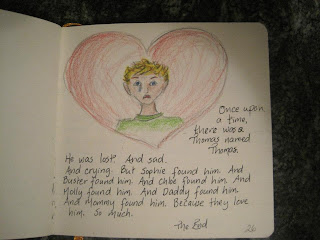 Once upon
a time,
there was a
Thomas named
Thomas.
He was lost. And sad.
And crying. But Sophie found him. And
Buster found him. And Chloe found him. And
Molly found him. And Daddy found him.
And Mommy found him. Because they love
him. So much.
The End
26